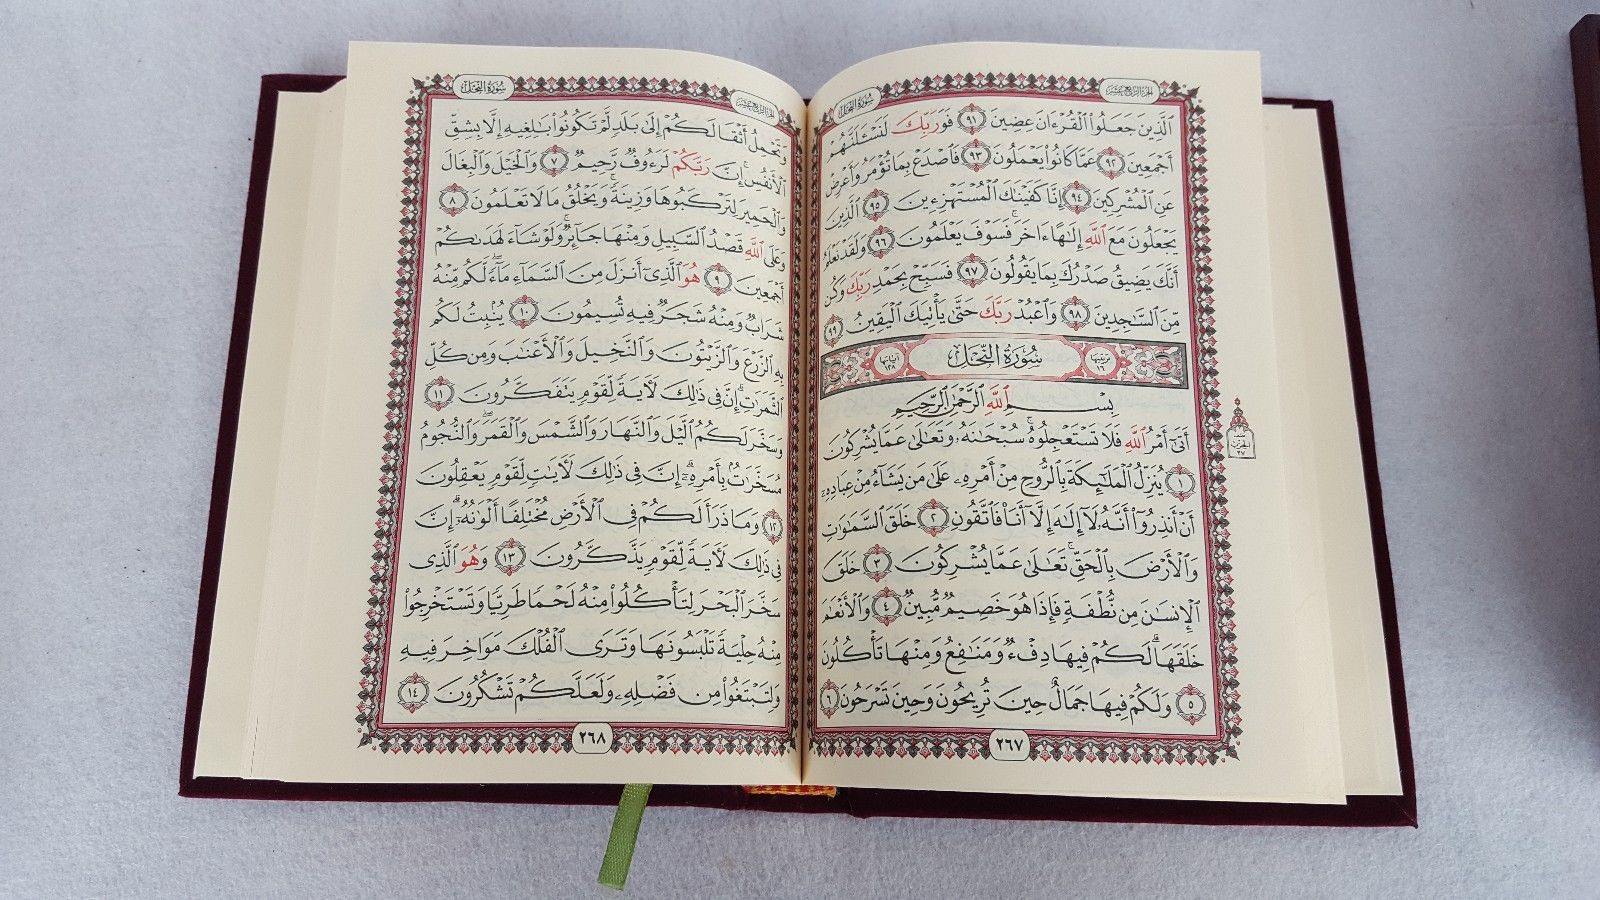 سورة النحل
الجزء الرابع عشر
الَّذِينَ جَعَلُوا الْقُرْءَانَ عِضِينَ ٩١ فَوَرَبِّكَ لَنَسْـَٔلَنَّهُمْ
أَجْمَعِينَ ٩٢ عَمَّا كَانُوا يَعْمَلُونَ ٩٣ فَاصْدَعْ بِمَا تُؤْمَرُ وَأَعْرِضْ
عَنِ الْمُشْرِكِينَ ٩٤ إِنَّا كَفَيْنَٰكَ الْمُسْتَهْزِءِينَ ٩٥ الَّذِينَ
يَجْعَلُونَ مَعَ اللَّهِ إِلَٰهًا ءَاخَرَ ۚ فَسَوْفَ يَعْلَمُونَ ٩٦ وَلَقَدْ نَعْلَمُ
أَنَّكَ يَضِيقُ صَدْرُكَ بِمَا يَقُولُونَ ٩٧ فَسَبِّحْ بِحَمْدِ رَبِّكَ وَكُن
مِّنَ السَّٰجِدِينَ ٩٨ وَاعْبُدْ رَبَّكَ حَتَّىٰ يَأْتِيَكَ الْيَقِينُ ٩٩
ترتيبها ١٦ سُورَةُ النَّحْلِ آياتها ١٢٨
بِسْمِ اللَّهِ الرَّحْمَٰنِ الرَّحِيمِ
أَتَىٰٓ أَمْرُ اللَّهِ فَلَا تَسْتَعْجِلُوهُ ۚ سُبْحَٰنَهُۥ وَتَعَٰلَىٰ عَمَّا يُشْرِكُونَ
١ يُنَزِّلُ الْمَلَٰٓئِكَةَ بِالرُّوحِ مِنْ أَمْرِهِۦ عَلَىٰ مَن يَشَآءُ مِنْ عِبَادِهِۦٓ
أَنْ أَنذِرُوٓا أَنَّهُۥ لَآ إِلَٰهَ إِلَّآ أَنَا۠ فَاتَّقُونِ ٢ خَلَقَ السَّمَٰوَٰتِ
وَالْأَرْضَ بِالْحَقِّ ۚ تَعَٰلَىٰ عَمَّا يُشْرِكُونَ ٣ خَلَقَ
الْإِنسَٰنَ مِن نُّطْفَةٍ فَإِذَا هُوَ خَصِيمٌ مُّبِينٌ ٤ وَالْأَنْعَٰمَ
خَلَقَهَا ۗ لَكُمْ فِيهَا دِفْءٌ وَمَنَٰفِعُ وَمِنْهَا تَأْكُلُونَ
٥ وَلَكُمْ فِيهَا جَمَالٌ حِينَ تُرِيحُونَ وَحِينَ تَسْرَحُونَ ٦
٢٦٧
الجزء الرابع عشر
سورة النحل
وَتَحْمِلُ أَثْقَالَكُمْ إِلَىٰ بَلَدٍ لَّمْ تَكُونُوا بَٰلِغِيهِ إِلَّا بِشِقِّ
الْأَنفُسِ ۚ إِنَّ رَبَّكُمْ لَرَءُوفٌ رَّحِيمٌ ٧ وَالْخَيْلَ وَالْبِغَالَ
وَالْحَمِيرَ لِتَرْكَبُوهَا وَزِينَةً ۚ وَيَخْلُقُ مَا لَا تَعْلَمُونَ ٨
وَعَلَى اللَّهِ قَصْدُ السَّبِيلِ وَمِنْهَا جَآئِرٌ ۚ وَلَوْ شَآءَ لَهَدَىٰكُمْ
أَجْمَعِينَ ٩ هُوَ الَّذِىٓ أَنزَلَ مِنَ السَّمَآءِ مَآءً ۖ لَّكُم مِّنْهُ
شَرَابٌ وَمِنْهُ شَجَرٌ فِيهِ تُسِيمُونَ ١٠ يُنۢبِتُ لَكُم
بِهِ الزَّرْعَ وَالزَّيْتُونَ وَالنَّخِيلَ وَالْأَعْنَٰبَ وَمِن كُلِّ
الثَّمَرَٰتِ ۗ إِنَّ فِى ذَٰلِكَ لَءَايَةً لِّقَوْمٍ يَتَفَكَّرُونَ ١١
وَسَخَّرَ لَكُمُ الَّيْلَ وَالنَّهَارَ وَالشَّمْسَ وَالْقَمَرَ ۖ وَالنُّجُومُ
مُسَخَّرَٰتٌۢ بِأَمْرِهِۦٓ ۗ إِنَّ فِى ذَٰلِكَ لَءَايَٰتٍ لِّقَوْمٍ يَعْقِلُونَ
١٢ وَمَا ذَرَأَ لَكُمْ فِى الْأَرْضِ مُخْتَلِفًا أَلْوَٰنُهُۥٓ ۗ إِنَّ
فِى ذَٰلِكَ لَءَايَةً لِّقَوْمٍ يَذَّكَّرُونَ ١٣ وَهُوَ الَّذِى
سَخَّرَ الْبَحْرَ لِتَأْكُلُوا مِنْهُ لَحْمًا طَرِيًّا وَتَسْتَخْرِجُوا
مِنْهُ حِلْيَةً تَلْبَسُونَهَا وَتَرَى الْفُلْكَ مَوَاخِرَ فِيهِ
وَلِتَبْتَغُوا مِن فَضْلِهِۦ وَلَعَلَّكُمْ تَشْكُرُونَ ١٤
٢٦٨